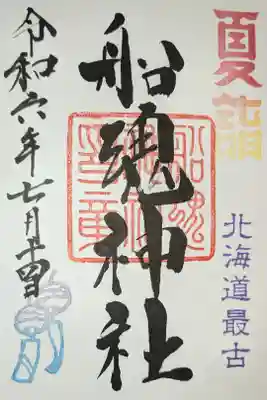 夏詣
北海道最古
船魂神社
令和六年七月十四日